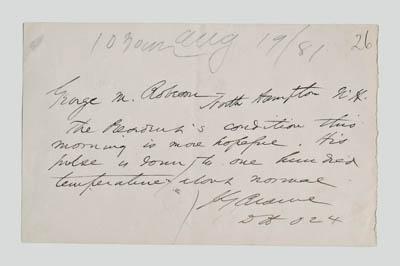 1030am Aug 19/81 26
George M. North Hampton N.H.
The President's condition this
morning is more hopeful. His
pulse is down to one hundred
temperature about normal
DH 024